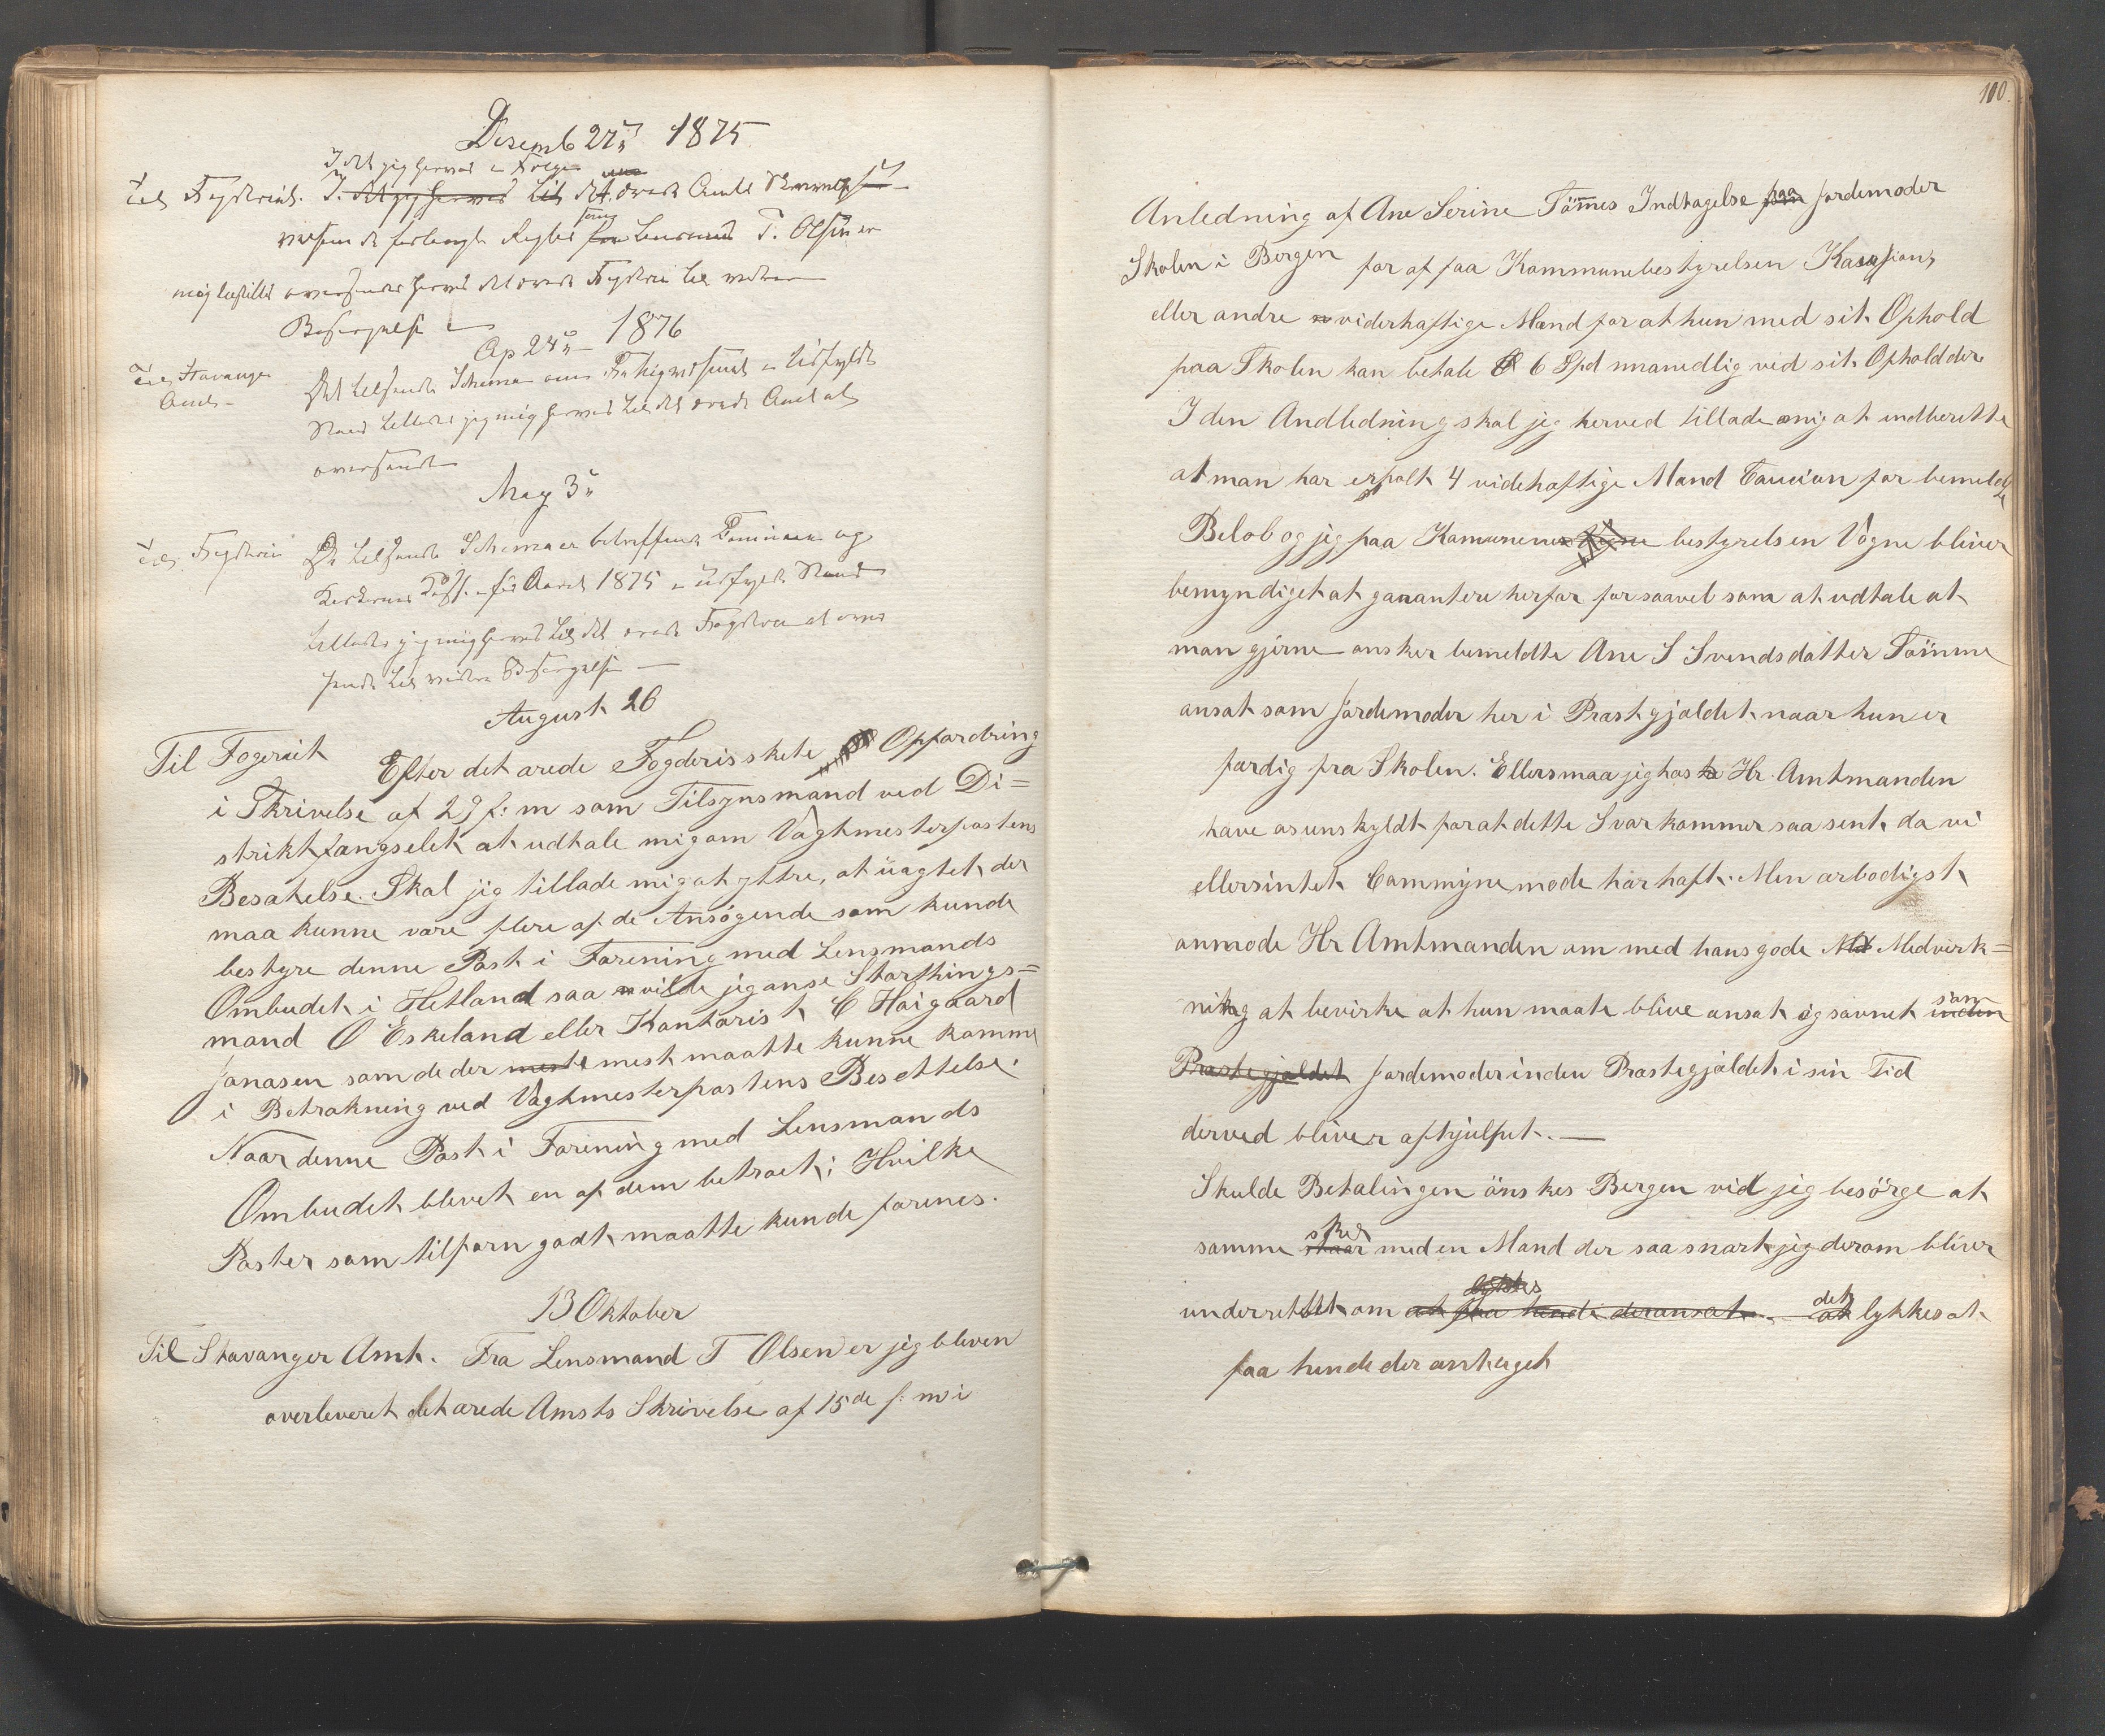 Desemb 27de 1875
Idet jeg herved i Følge
Til Fogderiet. I det ærede Amts
T. Olsen er
mig tilstillet oversendes herved det ærede Fogderi til videre
Besørgelse
Ap 24de 1876
Til Stavanger
Amt
Det tilsendte Schema om i udfyldt
Stand tillader jeg mig herved til det ærede Amt at
oversende
May 3de
Til Fogderiet De tilsendte Schemaer betreffende og
for Aaret 1875 i udfyldt Stand
tillader jeg mig herved til det ærede Fogderie at over
sende til videre Besørgelse
August 26
Til Fogeriet Efter det ærede Fogderis skete Opfordring
i Skrivelse af 29 f: m som Tilsynsmand ved Di=
striktfængselet at udtale mig om Vagtmesterpostens
Besatelse. Skal jeg tillade mig at yttre, at uagtet der
maa kunne være flere af de Ansøgende som kunde
bestyre denne Post i Forening med Lensmands
Ombudet i Hetland saa vilde jeg anse Storthings=
mand O Eskeland eller Kontorist C Høigaard
Jonasen som de der meste mest maatte kunne komme
i Betrakning ved Vagtmesterpostens Besettelse.
Naar denne Post i Forening med Lensmands
Ombudet blevet en af dem betroet; Hvilke
Poster som tilforn godt maatte kunde forenes.
13 Oktober
Til Stavanger Amt. Fra Lensmand T Olsen er jeg bleven
overleveret det ærede Amsts Skrivelse af 15de f: m i
110.
Anledning af Ane Serine Tømes Indtagelse paa Jordemoder
Skolen i Bergen for af faa Kommunebestyrelsen
eller andre viderhaftige Mand for at hun med sit Ophold
paa Skolen kan betale 6 Spd maanedlig ved sit Ophold der
I den Andledning skal jeg herved tillade mig at indberette
at man har erholt 4 videhaftige Mand Caution for bemeldte
Beløb og jeg paa Kamunenes bestyrelsen Vegne bliver
bemyndiget at garantere herfor for saavel som at udtale at
man gjerne ønsker bemeldte Ane S Svendsdatter Tømme
ansat som Jordemoder her i Præstgjældet naar hun er
færdig fra Skolen. Ellers maa jeg hos Hr. Amtmanden
have os unskyldt for at dette Svar kommer saa sent da vi
ellers intet Commyne møde har haft. Men ærbødigst
anmode Hr Amtmanden om med hans gode Med Medvirk=
ning at bevirke at hun maate blive ansat og savnet som
inden
Præstegjældet Jordemoder inden Præstegjældet i sin Tid
derved bliver afhjulpet. —
Skulde Betalingen ønskes Bergen vid jeg besørge at
sker
samme staar med en Mand der saa snart jeg derom bliver
lykkes
underrettet om at faa hende der ansat. det at lykkes at
faa hende der anstaget